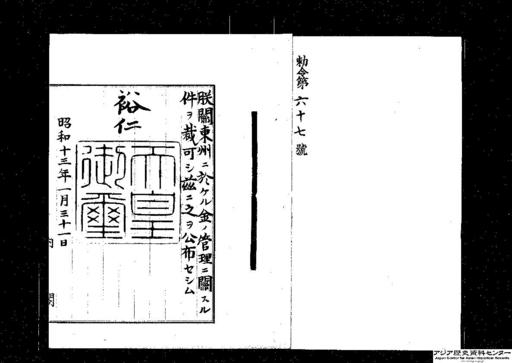 勅令第六十七號
朕關東州ニ於ケル金ノ管理ニ關スル
件ヲ裁可シ茲ニ之ヲ公布セシム
裕仁
天皇
御璽
昭和十三年一月三十一日
内閣
アジア歴史資料センター
Japan Center for Asian Historical Records